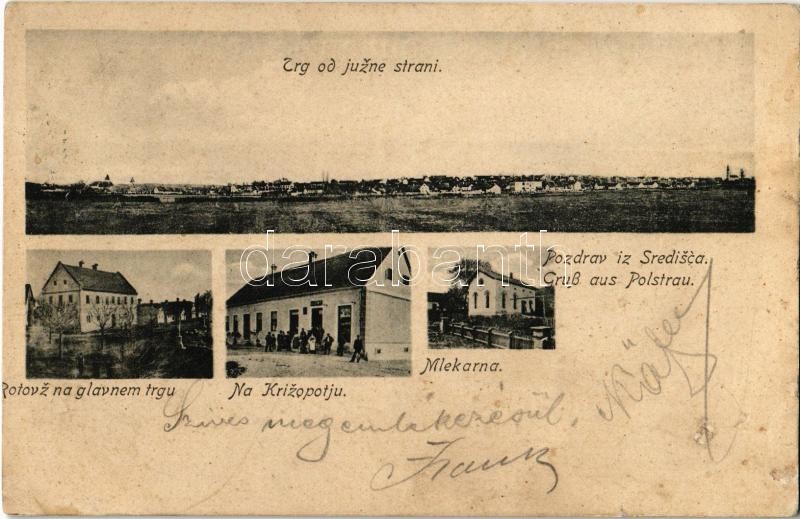 Trg od južne strani.
darabanth
Pozdrav iz Središča.
Gruß aus Polstrau.
Rotovž na glavnem trgu
Na Križopotju.
Mlekarna.
Szives megemlékezésül,
Frank